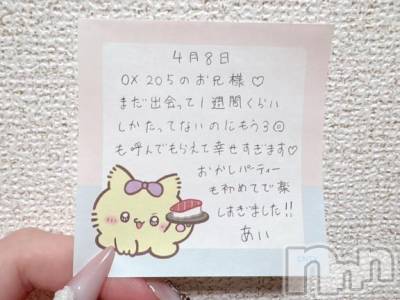 4月8日
OX 205のお兄様♡
まだ出会って1週間くらい
しかたってないのにもう3回
も呼んでもらえて幸せすぎます♡
おかしパーティー
も初めてで楽
しすぎました!!
あい